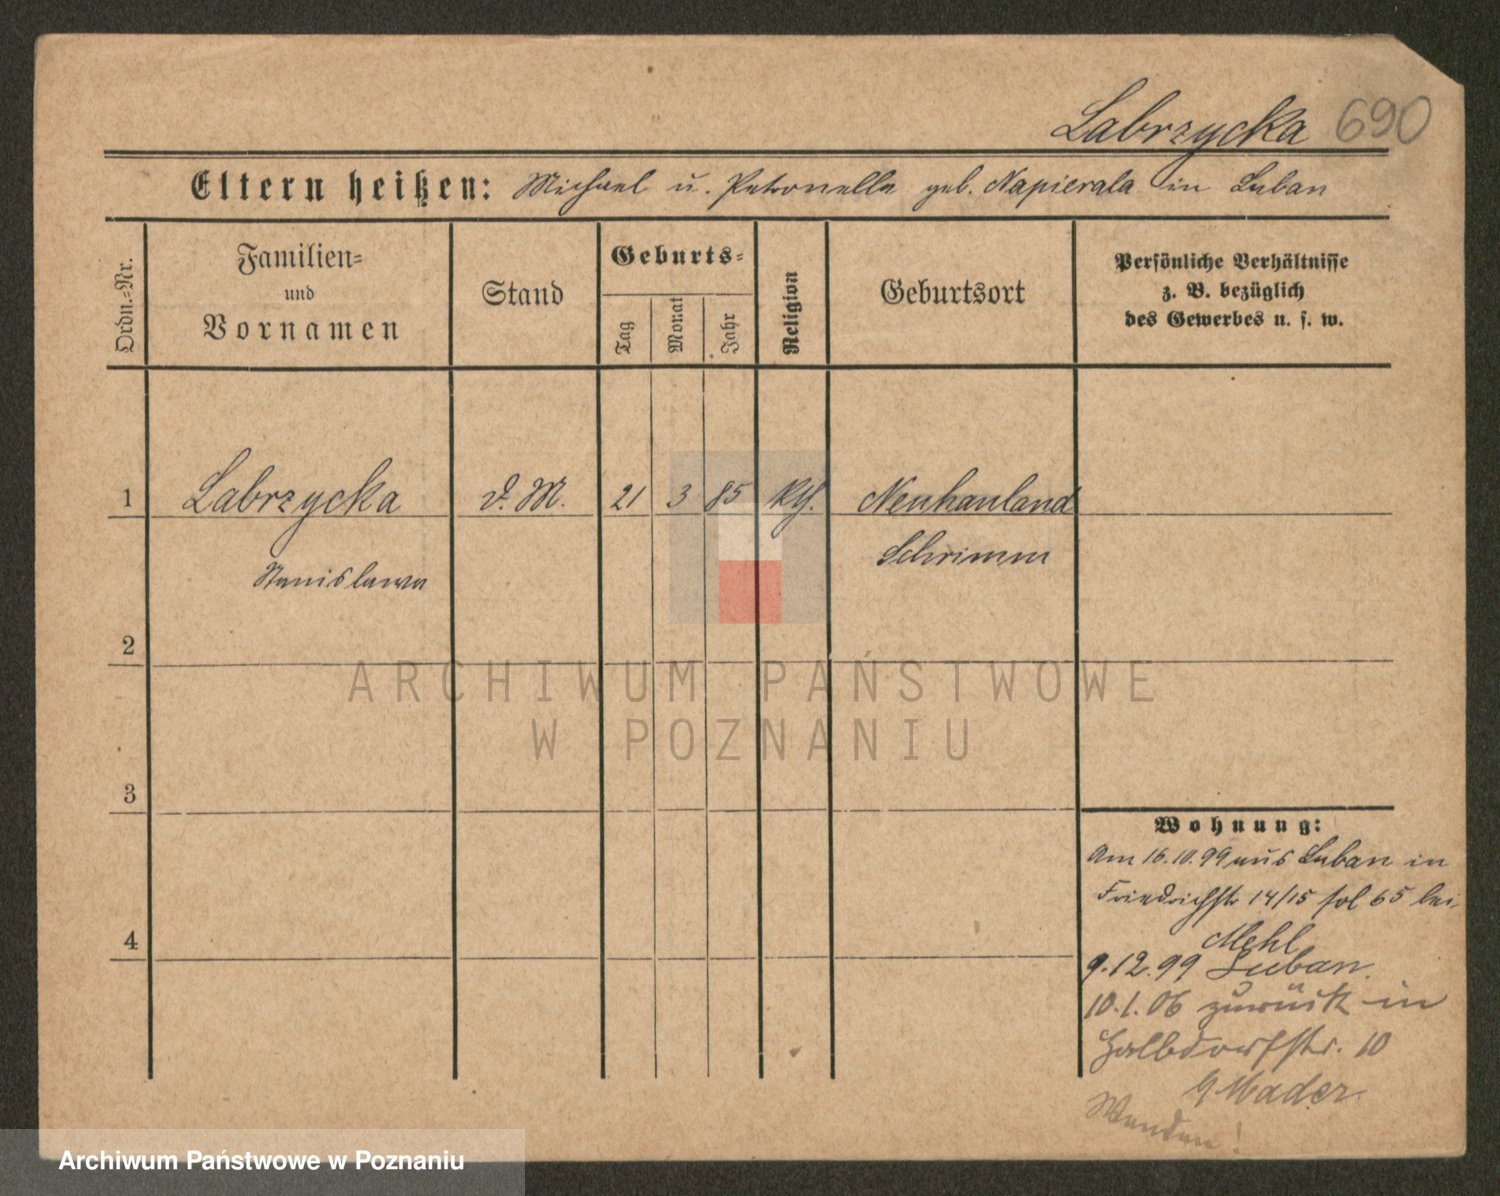 Labrzycka 690
Eltern heißen: Michael u. Petronella geb. Napierala in Luban
Ordn.-Nr.
Familien-
und
Vornamen
Stand
Geburts-
Tag
Monat
Jahr
Religion
Geburtsort
Persönliche Verhältnisse
z. B. bezüglich
des Gewerbes u. s. w.
1 Labrzycka d. M. 21 3 85 kth. Neuhauland
Stanislawa Schrimm
2
3
4
Wohnung:
Am 16.10.99 aus Luban in
Friedrichstr 14/15 fol 65 bei
Mehl
9.12.99 Luban.
10.1.06 zurück in
Halbdorfstr. 10
Mader
Wenden!
ARCHIWUM PAŃSTWOWE
W POZNANIU
Archiwum Państwowe w Poznaniu